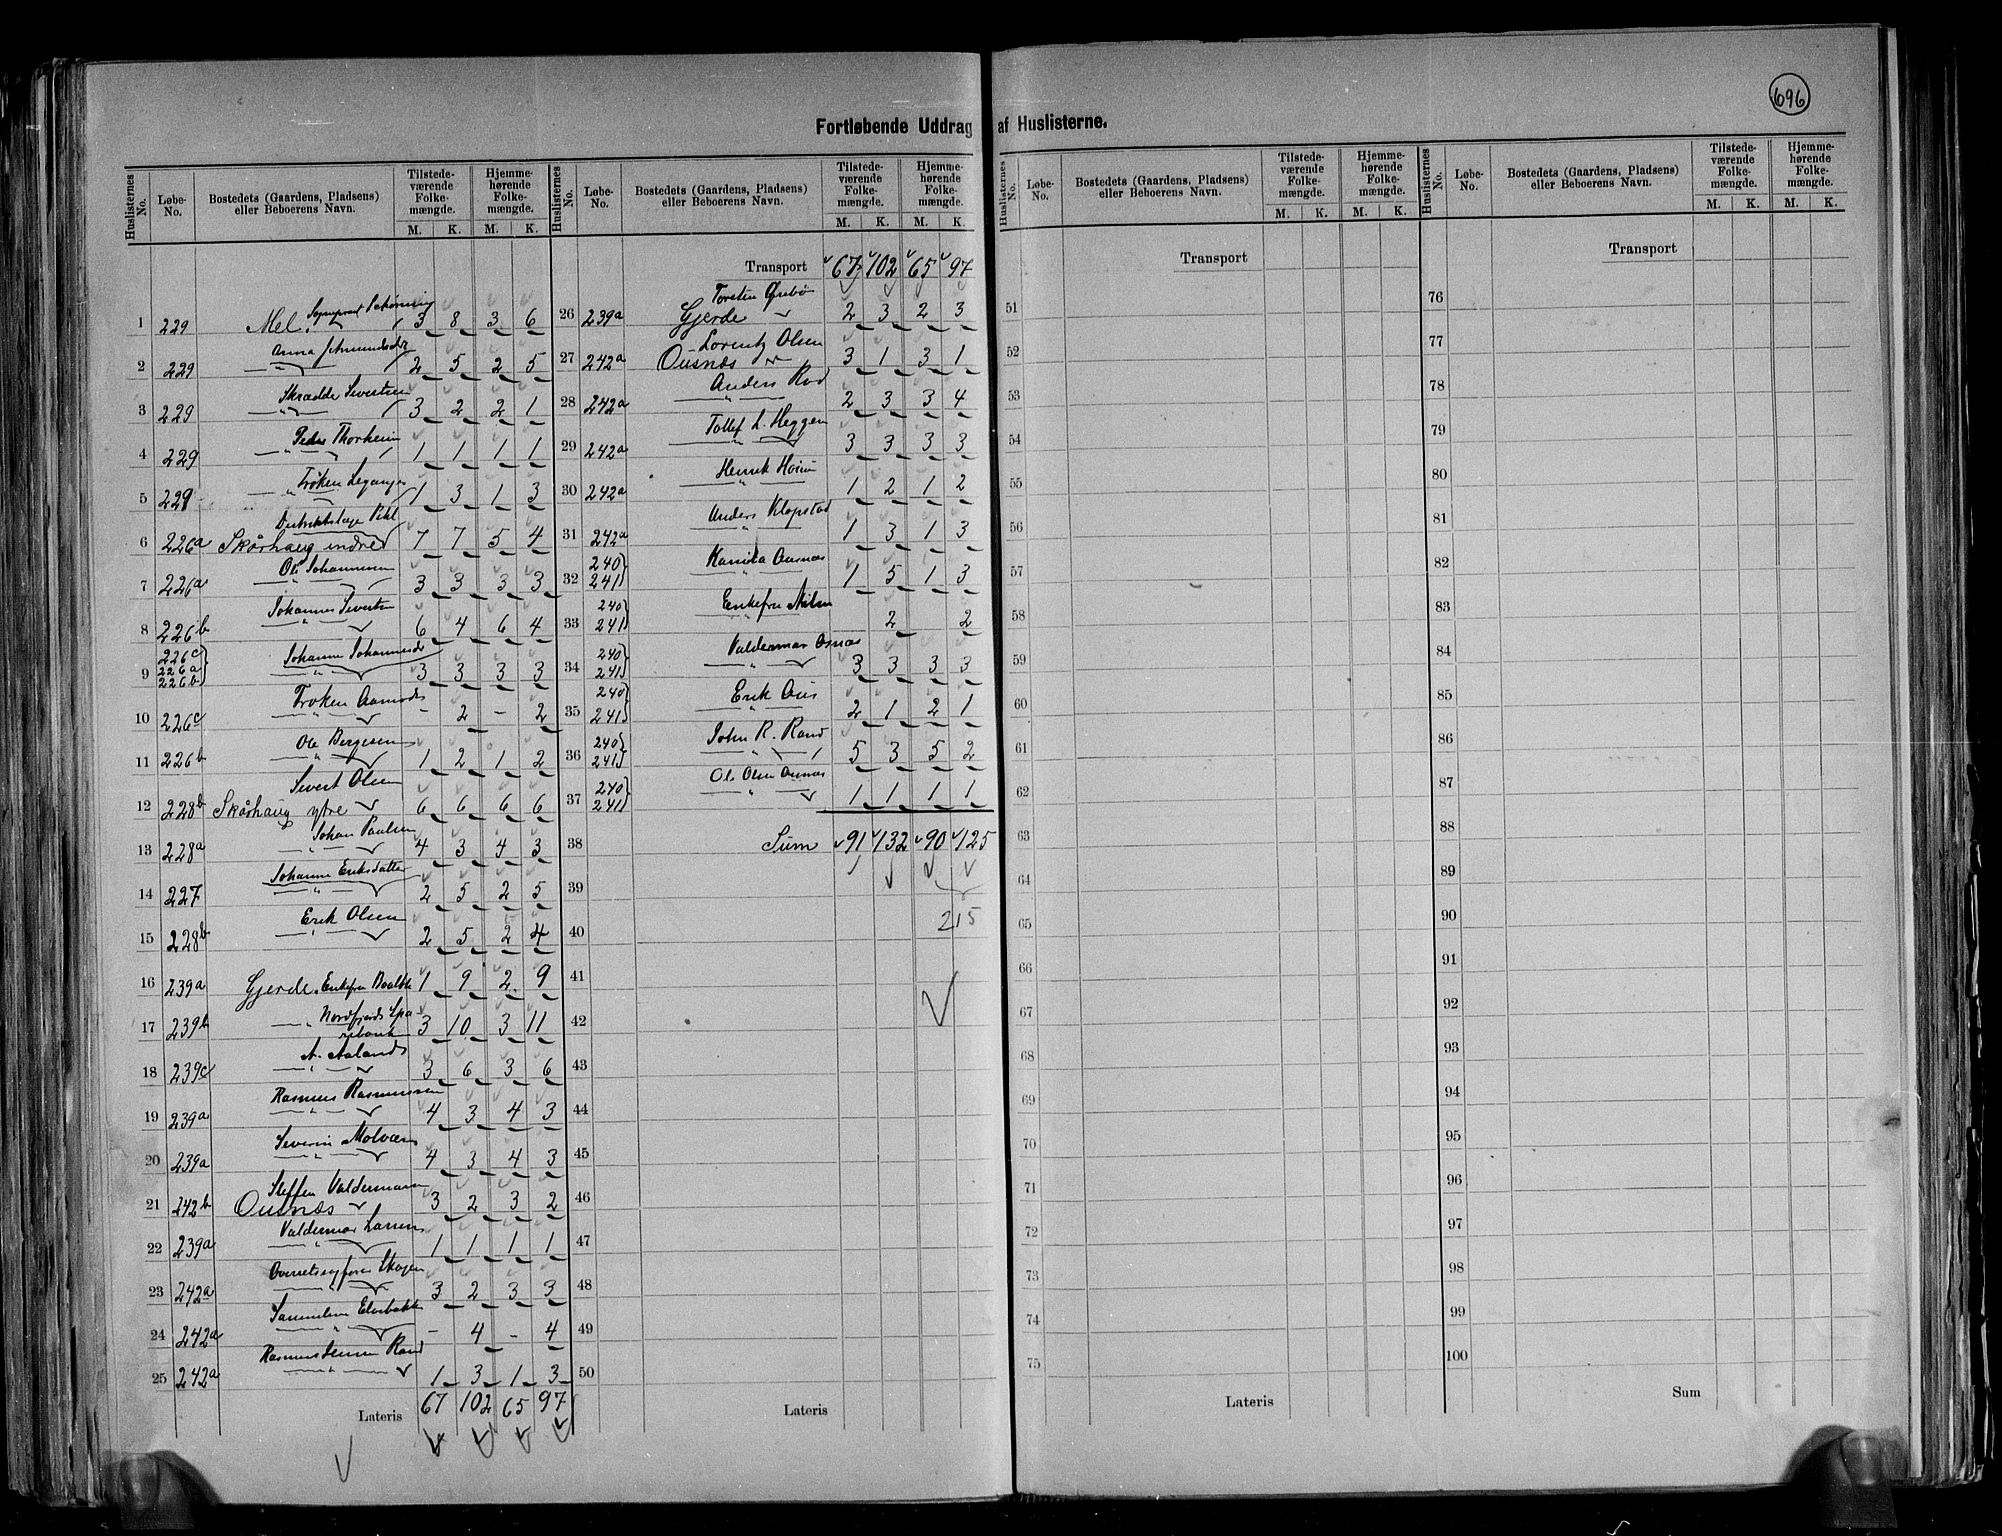 696
Fortløbende Uddrag af Huslisterne.
Huslisternes No. Løbe-No. Bostedets (Gaardens, Pladsens) eller Beboerens Navn. Tilstede-værende Folke-mængde. M. K. Hjemme-hørende Folke-mængde. M. K.
1 229 Mel, Sogneprest Schøning 3 8 3 6
2 229 Anna Amundsdtr 2 5 2 5
3 229 " Skrædder Sivertsen 3 2 2 1
4 229 " Peder Thorheim 1 1 1 1
5 229 " Frøken Leganger 1 3 1 3
6 226a Distriktslæge Pihl
Skårhaug indre 7 7 5 4
7 226a " Ole Johannesen 3 3 3 3
8 226b " Johannes Sivertsen 6 4 6 4
9 226c 226a 226b Johanne Johannesdtr 3 3 3 3
10 226c " Frøken Aamodt - 2 - 2
11 226b " Ole Bergesen 1 2 1 2
12 228b Sivert Olsen
Skårhaug ytre 6 6 6 6
13 228a " Johan Paulsen 4 3 4 3
14 227 " Johanne Eriksdatter 2 5 2 5
15 228b " Erik Olsen 2 5 2 4
16 239a Gjerde, Enkefru 1 9 2 9
17 239b " Nordfjords Sparebank 3 10 3 11
18 239c " A. Aaland 3 6 3 6
19 239a " Rasmus Rasmussen 4 3 4 3
20 239a " Severin Molvær 4 3 4 3
21 242b Steffen Valdermann
Ousnæs 3 2 3 2
22 239a " Valdermar Larsen 1 1 1 1
23 242a " Overretssagfører Skogen 3 2 3 3
24 242a " Samuline - 4 - 4
25 242a " Rasmus Jensen Rand 1 3 1 3
Lateris 67 102 65 97
Huslisternes No. Løbe-No. Bostedets (Gaardens, Pladsens) eller Beboerens Navn. Tilstede-værende Folke-mængde. M. K. Hjemme-hørende Folke-mængde. M. K.
Transport 67 102 65 97
26 239a Torsten Ørebø
Gjerde 2 3 2 3
27 242a Lorentz Olsen
Ousnæs 3 1 3 1
28 242a " Anders Rod 2 3 3 4
29 242a " Tollef L. Heggen 3 3 3 3
30 242a " Henrik 1 2 1 2
31 242a " Anders Klopstad 1 3 1 3
32 240 241 " Kamilla Ausnæs 1 5 1 3
33 240 241 " Enkefru 2 2
34 240 241 " Valdermar Osnæs 3 3 3 3
35 240 241 " Erik Aus 2 1 2 1
36 240 241 " John R. Rand 5 3 5 2
37 240 241 " Ole Olsen Ousnæs 1 1 1 1
38 Sum 91 132 90 125
39
215
40
41
42
43
44
45
46
47
48
49
50
Lateris
Huslisternes No. Løbe-No. Bostedets (Gaardens, Pladsens) eller Beboerens Navn. Tilstede-værende Folke-mængde. M. K. Hjemme-hørende Folke-mængde. M. K.
Transport
51
52
53
54
55
56
57
58
59
60
61
62
63
64
65
66
67
68
69
70
71
72
73
74
75
Lateris
Huslisternes No. Løbe-No. Bostedets (Gaardens, Pladsens) eller Beboerens Navn. Tilstede-værende Folke-mængde. M. K. Hjemme-hørende Folke-mængde. M. K.
Transport
76
77
78
79
80
81
82
83
84
85
86
87
88
89
90
91
92
93
94
95
96
97
98
99
100
Sum